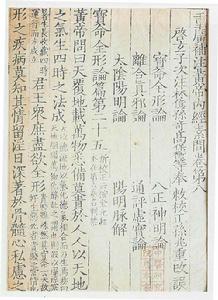 重廣補注黃帝內經素問卷第八
啟玄子次注林億孫奇高保衡等奉敕校正孫兆重改誤
寶命全形論 八正神明論
離合真邪論 通評虛實論
太陰陽明論 陽明脈解
寶命全形論篇第二十五 新校正云按全元起本在第六卷名刺禁
黃帝問曰天覆地載萬物悉備莫貴於人人以天地
之氣生四時之法成
暑生長收藏四時運行而方成立 君王眾庶盡欲全形
形之疾病莫知其情留淫日深著於骨髓心私慮之